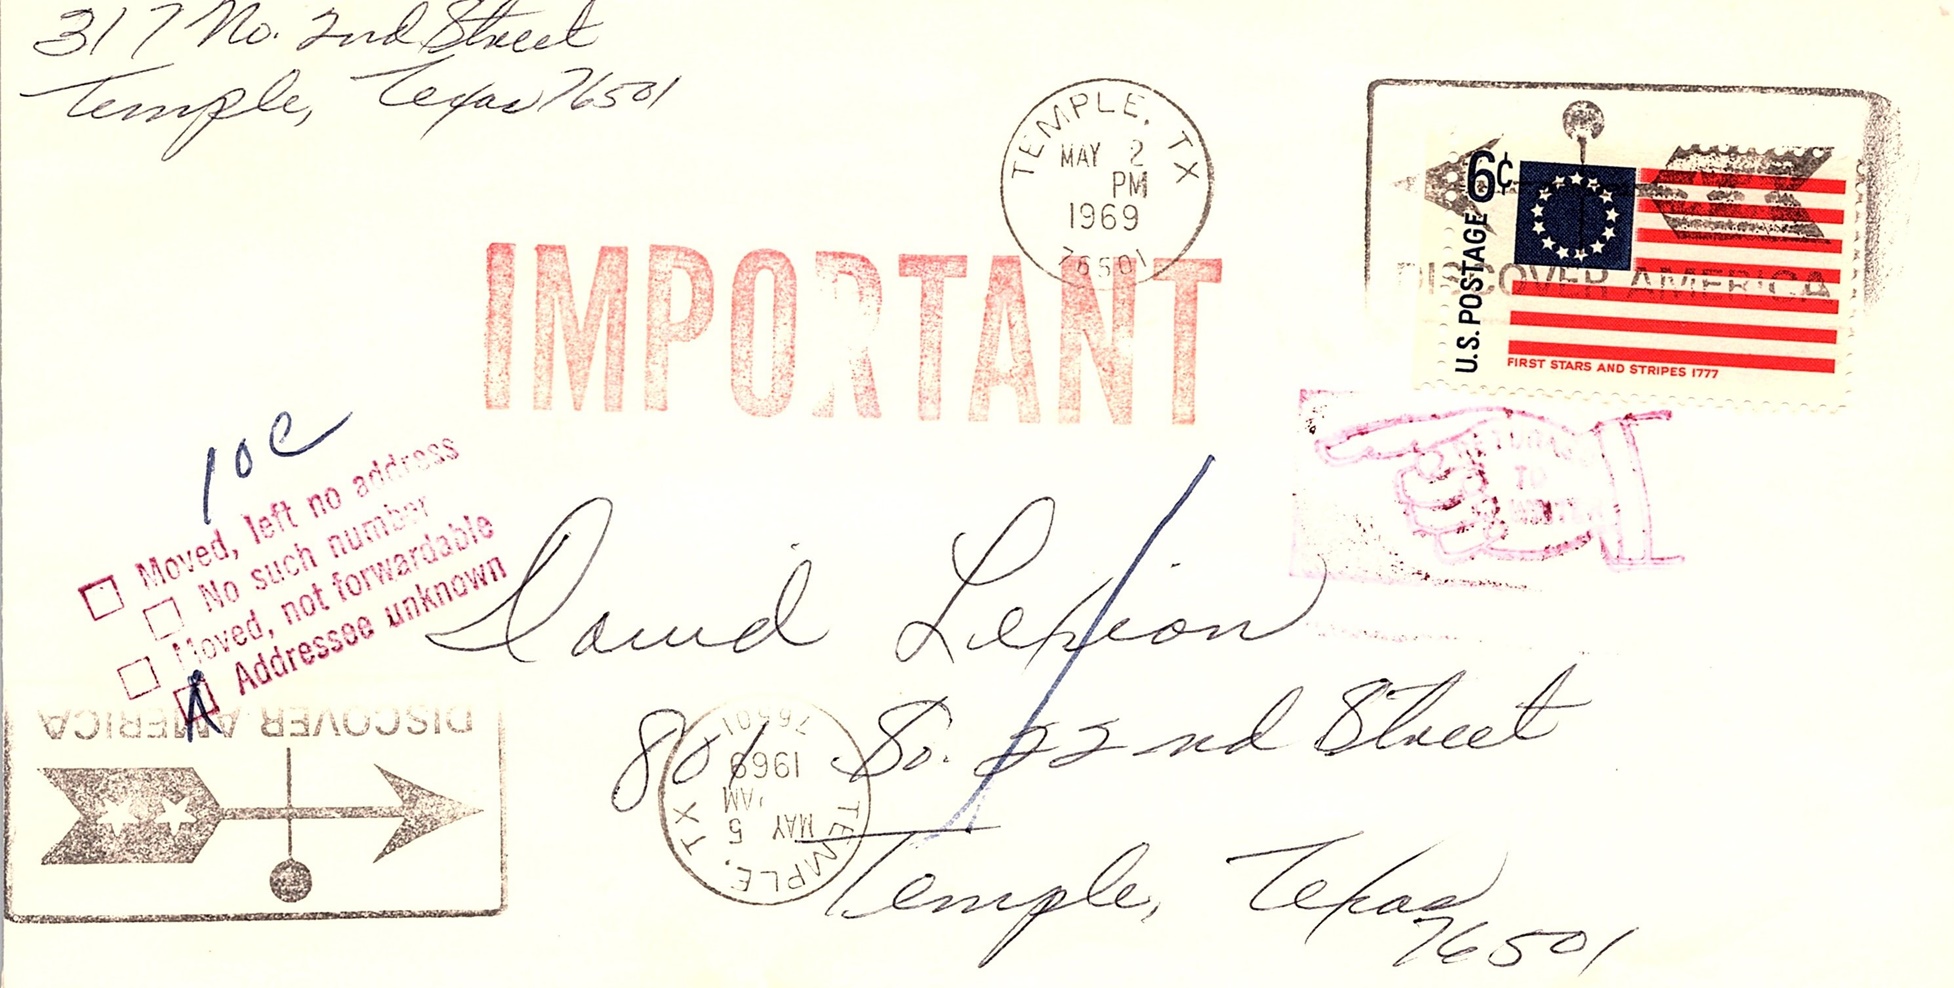 317 No. 2nd Street
Temple, Texas 76501
TEMPLE, TX
MAY 2
PM
1969
76501
6¢
U.S. POSTAGE
DISCOVER AMERICA
FIRST STARS AND STRIPES 1777
IMPORTANT
RETURN
TO
10c
Moved, left no address
No such number
Moved, not forwardable
Addressee unknown
David
801 So. 22nd Street
Temple, Texas
76501
DISCOVER AMERICA
TEMPLE, TX
MAY 5
AM
1969
76501